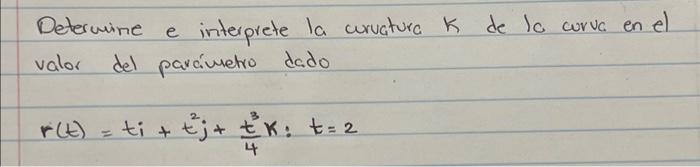 Determine e interprete la curvatura K de la curva en el
valor del parámetro dado
r(t) = ti + t²j + t³/4 K; t = 2